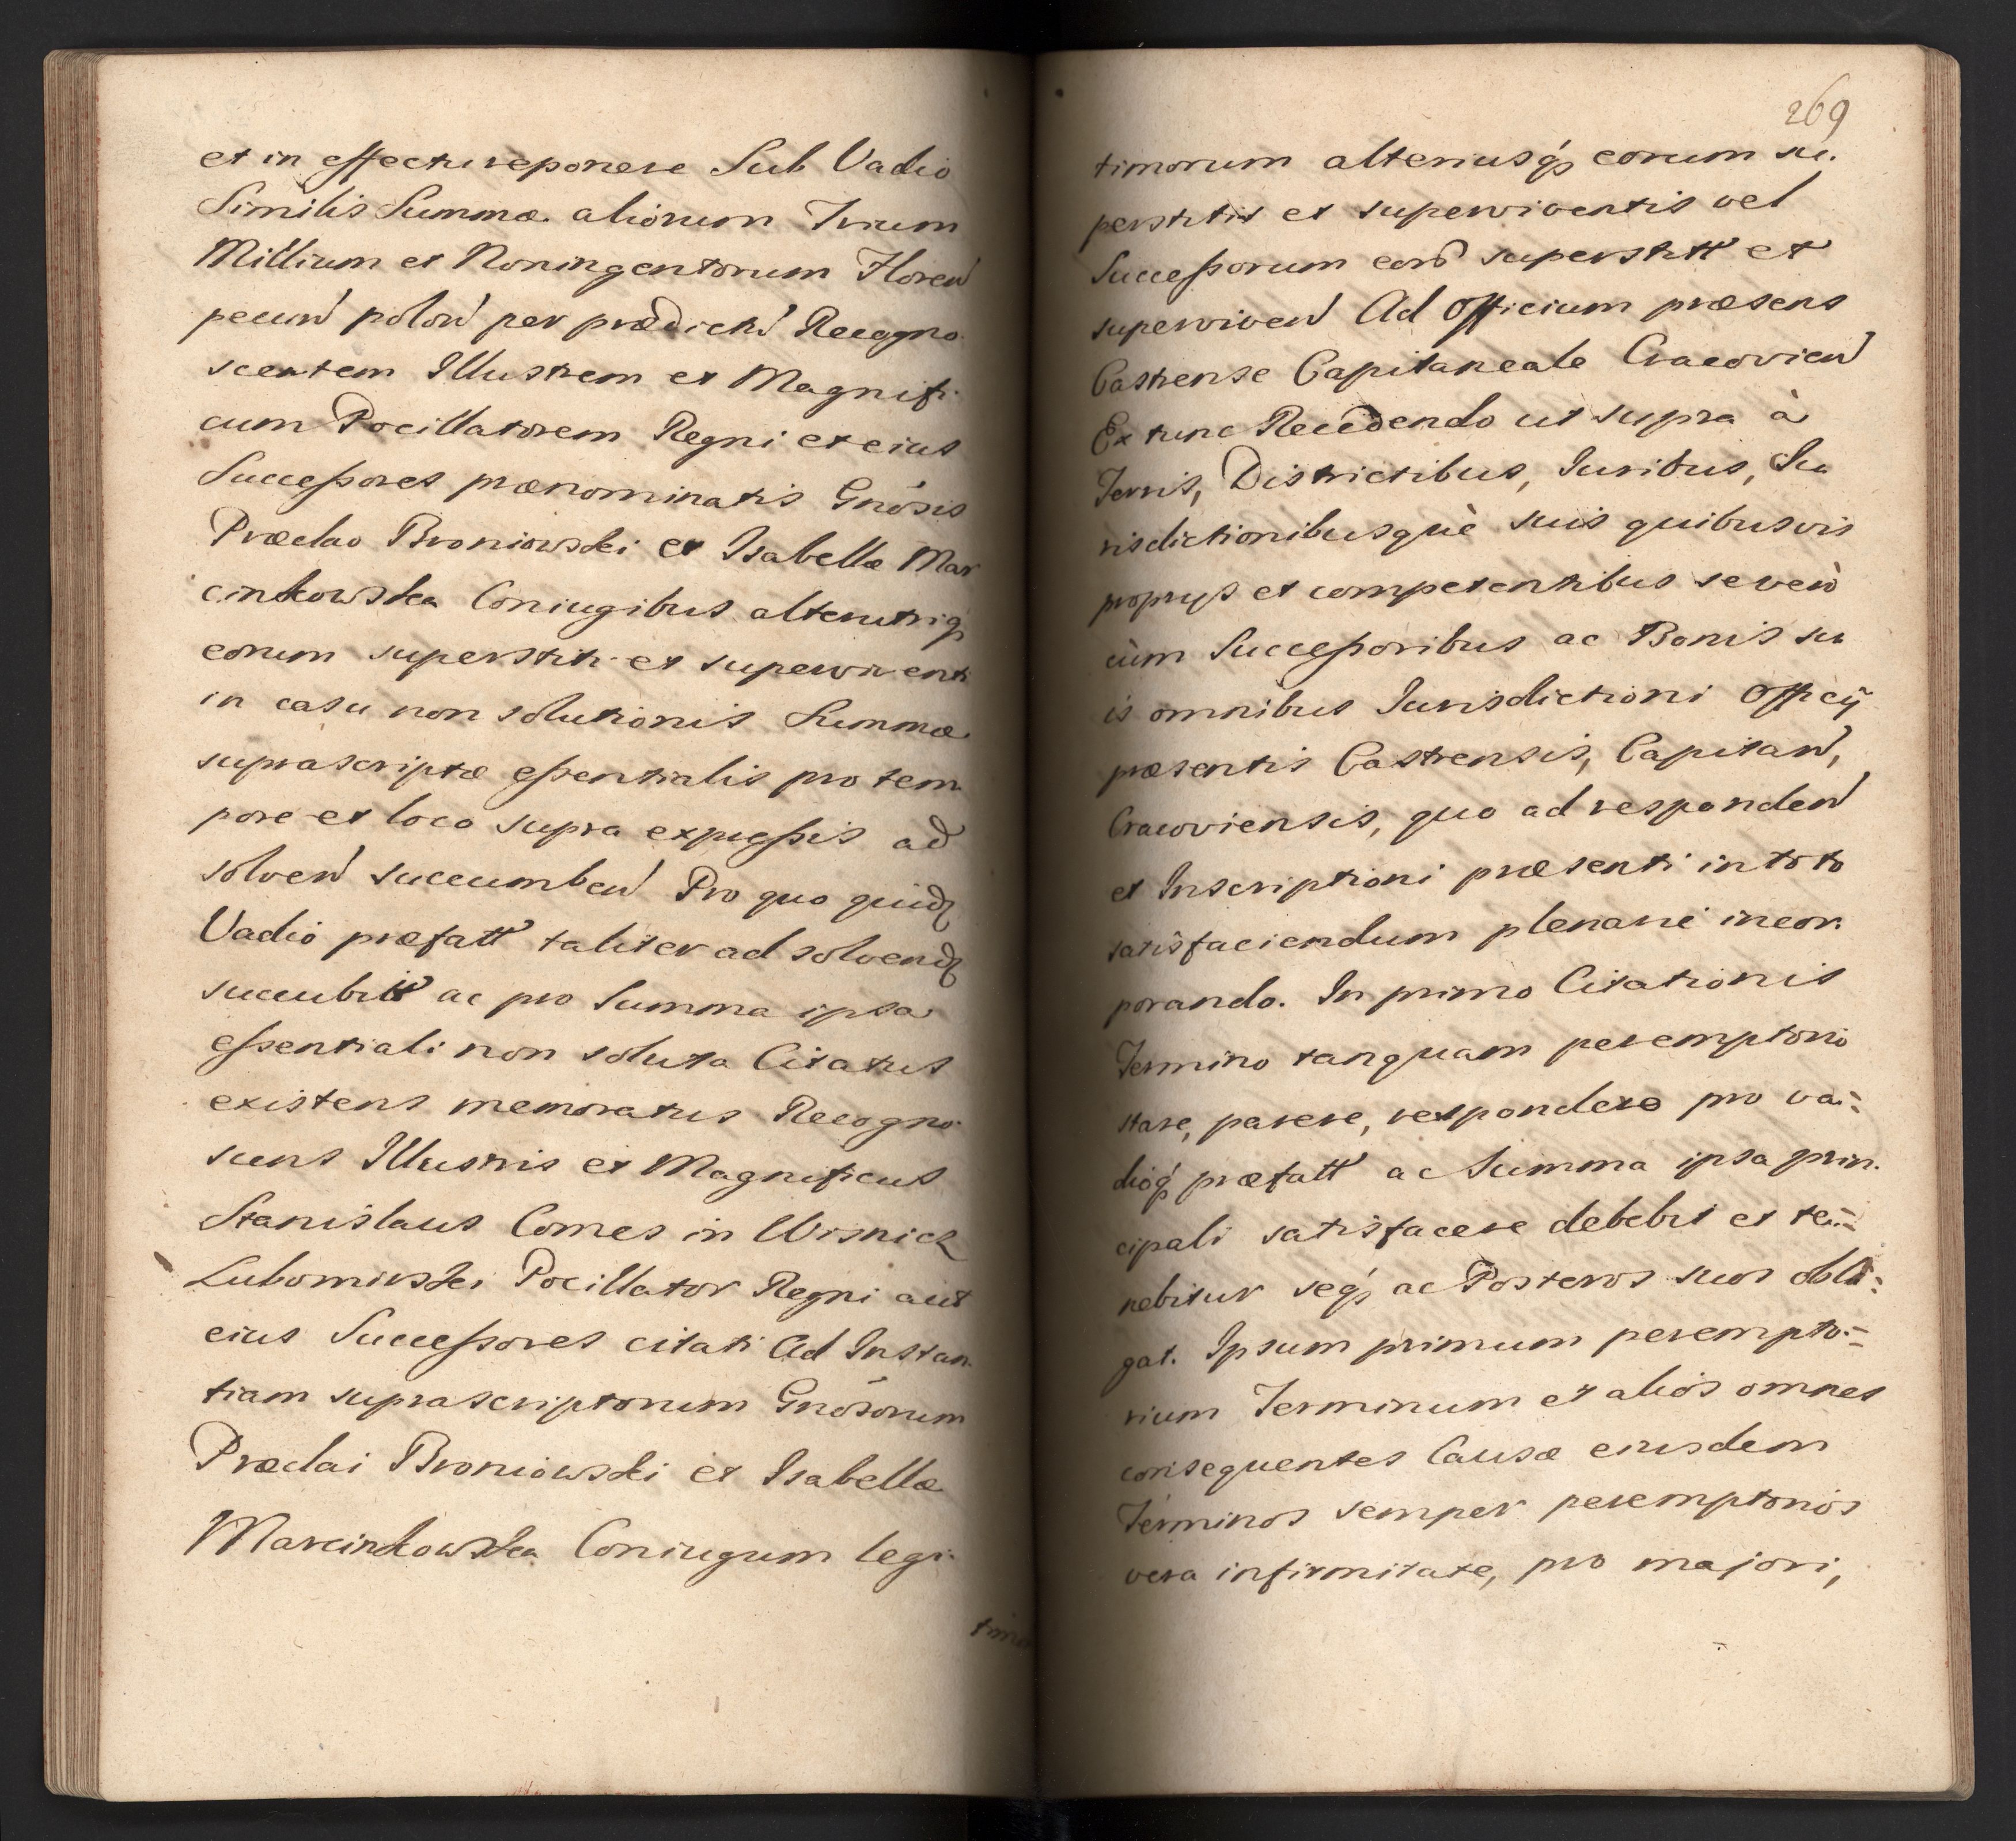 et in effectu reponere Sub Vadio
Similis Summæ aliorum Trium
Millium et Noningentorum Floren̄
pecun̄ polon̄ per prædictū Recogno
scentem Illustrem et Magnifi-
cum Pocillatorem Regni et eius
Successores prænominatis Gnōsis
Præclao Broniowski et Isabellæ Mar
cinkowska Coniugibus alterutriq̨
eorum superstiti et superviventi
in casu non solutionis Summæ
suprascriptæ essentialis pro tem-
pore et loco supra expressis ad
solven̄ succumben̄ Pro quo quidę
Vadio præfatt̄ taliter ad solvendę
succubit̄ ac pro Summa ipsa
essentiali non soluta Citatus
existens memoratus Recogno-
scens Illustris et Magnificus
Stanislaus Comes in Wisnicz
Lubomirski Pocillator Regni aut
eius Successores citati Ad Instan-
tiam suprascriptorum Gnōsorum
Præclai Broniowski et Isabellæ
Marcinkowska Coniugum legi-
timo
269
timorum alteriusq̨ eorum su-
perstitis et superviventis vel
Successorum eorū superstitt̄ et
superviven̄ Ad Officium præsens
Castrense Capitaneale Cracovien̄
Ex tunc Recedendo ut supra à
Terris, Districtibus, Iuribus, Iu
risdictionibusquè suis quibusvis
proprys et competentibus seveū
cùm Successoribus ac Bonis su
is omnibus Iurisdictioni Officÿ
præsentis Castrensis, Capitan̄,
Cracoviensis, quo ad responden̄
et Inscriptioni præsenti in toto
satisfaciendum plenariè incor-
porando. In primo Citationis
Termino tanquam peremptorio
stare, parere, respondere pro va-:
dioq̨ præfatt̄ ac Summa ipsa prin-
cipali satisfacere debebit et te:-
nebitur seq̨ ac Posteros suos obli:
gat. Ipsum primum perempto:-
rium Terminum et alios omnes
consequentes Causæ eiusdem
Terminos semper peremptorios
vera infirmitate, pro majori,